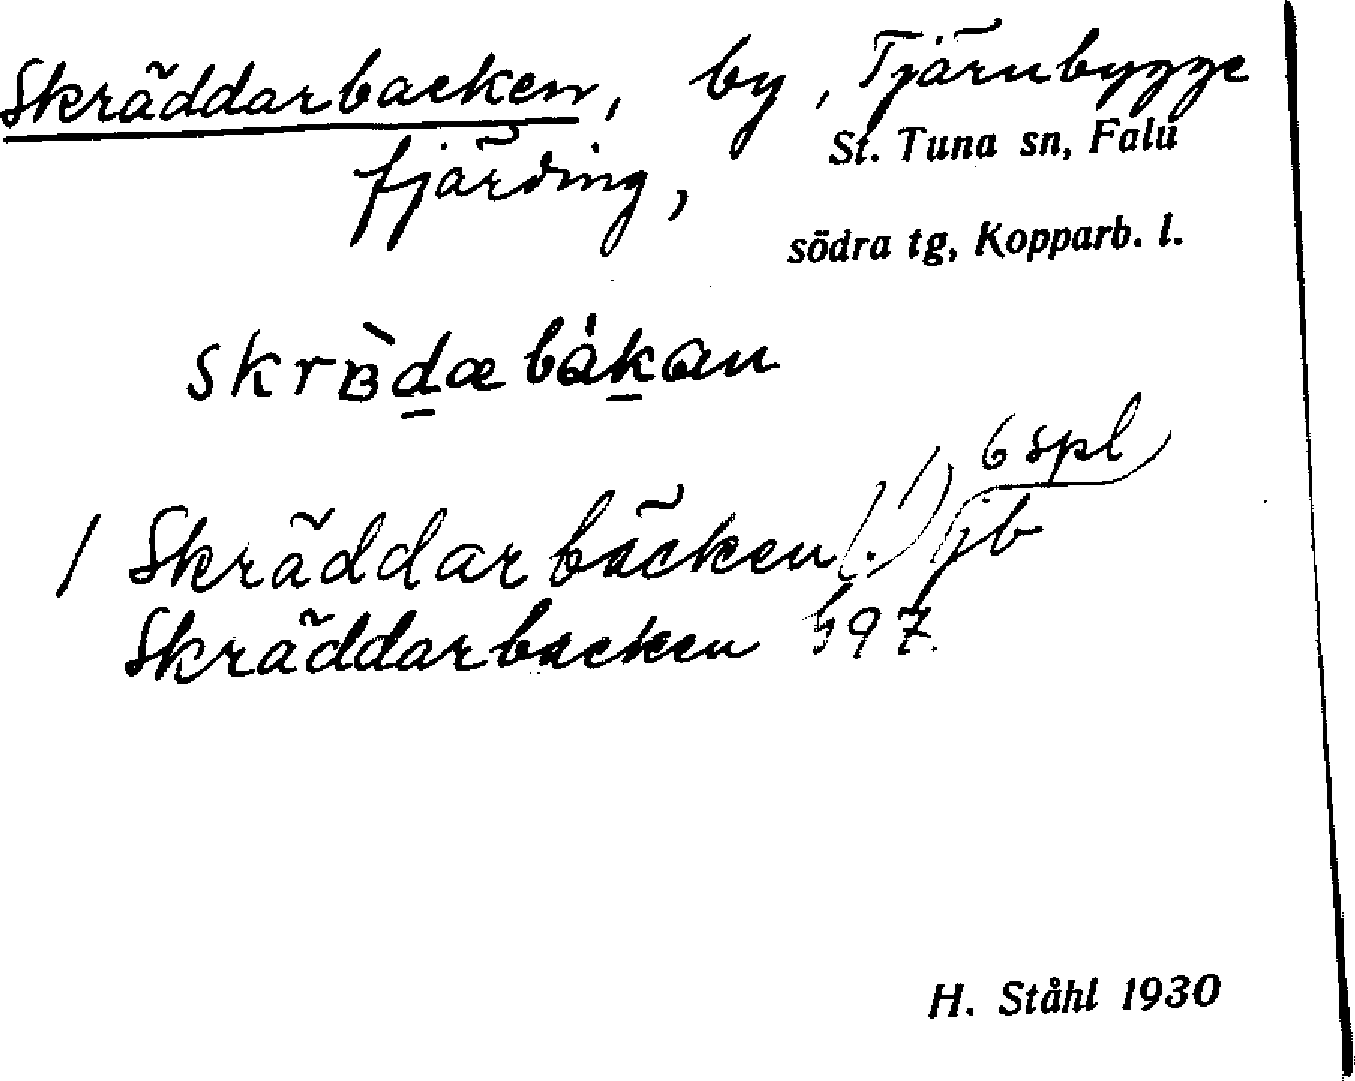 Skräddarbacken, by, Tjärnbygge
fjärding,
St. Tuna sn, Falu
södra tg, Kopparb. l.
skrädæbàkan
6 spl
1 Skräddarbäcken (!) jb
Skräddarbacken 97
H. Ståhl 1930